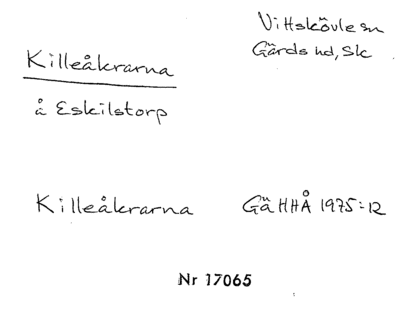 Vittskövle sn
Gärds hd, Sk
Killeåkrarna
å Eskilstorp
Killeåkrarna GäHHÅ 1975:12
Nr 17065